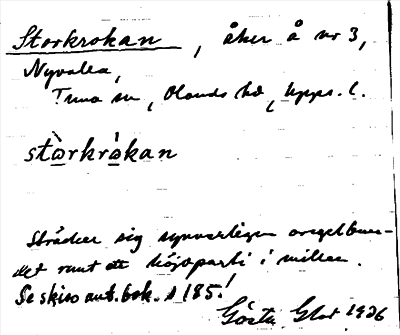 Storkrokan, åker å nr 3,
Nyvalla,
Tuna sn, Olands hd, Upps. l.
stòrkròkan
Sträcker sig synnerligen oregelbun-
det runt ett höjdparti i mitten.
Se skiss ant.bok. s 185!
Gösta 1926